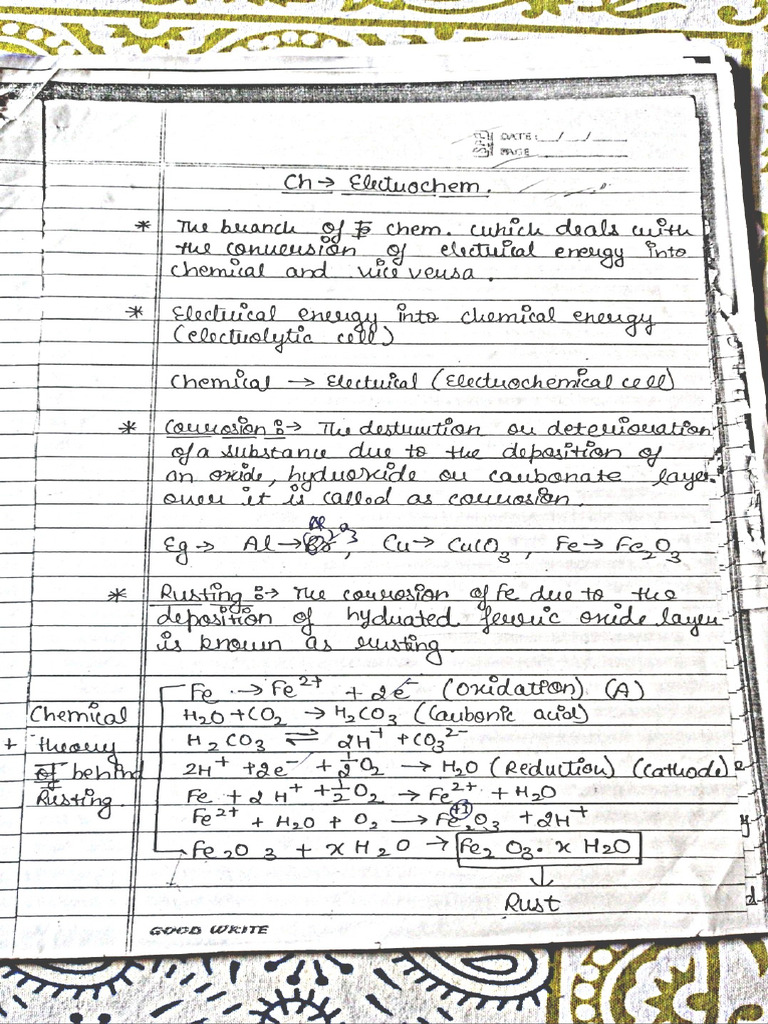 DATE: __/__/__
PAGE
Ch → Electrochem.
* The branch of chem. which deals with
the conversion of electrical energy into
chemical and vice versa.
* Electrical energy into chemical energy
(electrolytic cell)
Chemical → Electrical (Electrochemical cell)
* Corrosion :→ The destruction or deterioration
of a substance due to the deposition of
an oxide, hydroxide or carbonate layer
over it is called as corrosion.
Eg → Al → Al2O3, Cu → CuCO3, Fe → Fe2O3
* Rusting :→ The corrosion of Fe due to the
deposition of hydrated ferric oxide layer
is known as rusting.
Chemical
theory
of behind
Rusting.
Fe → Fe²⁺ + 2e⁻ (Oxidation) (A)
H2O + CO2 → H2CO3 (Carbonic acid)
H2CO3 ⇌ 2H⁺ + CO3²⁻
2H⁺ + 2e⁻ + ½O2 → H2O (Reduction) (Cathode)
Fe + 2H⁺ + ½O2 → Fe²⁺ + H2O
Fe²⁺ + H2O + O2 → Fe2O3 + 2H⁺
Fe2O3 + xH2O → Fe2O3·xH2O
↓
Rust
GOOD WRITE